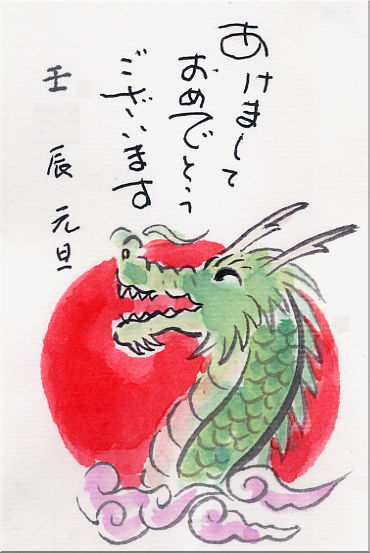 あけまして
おめでとう
ございます
壬辰元旦